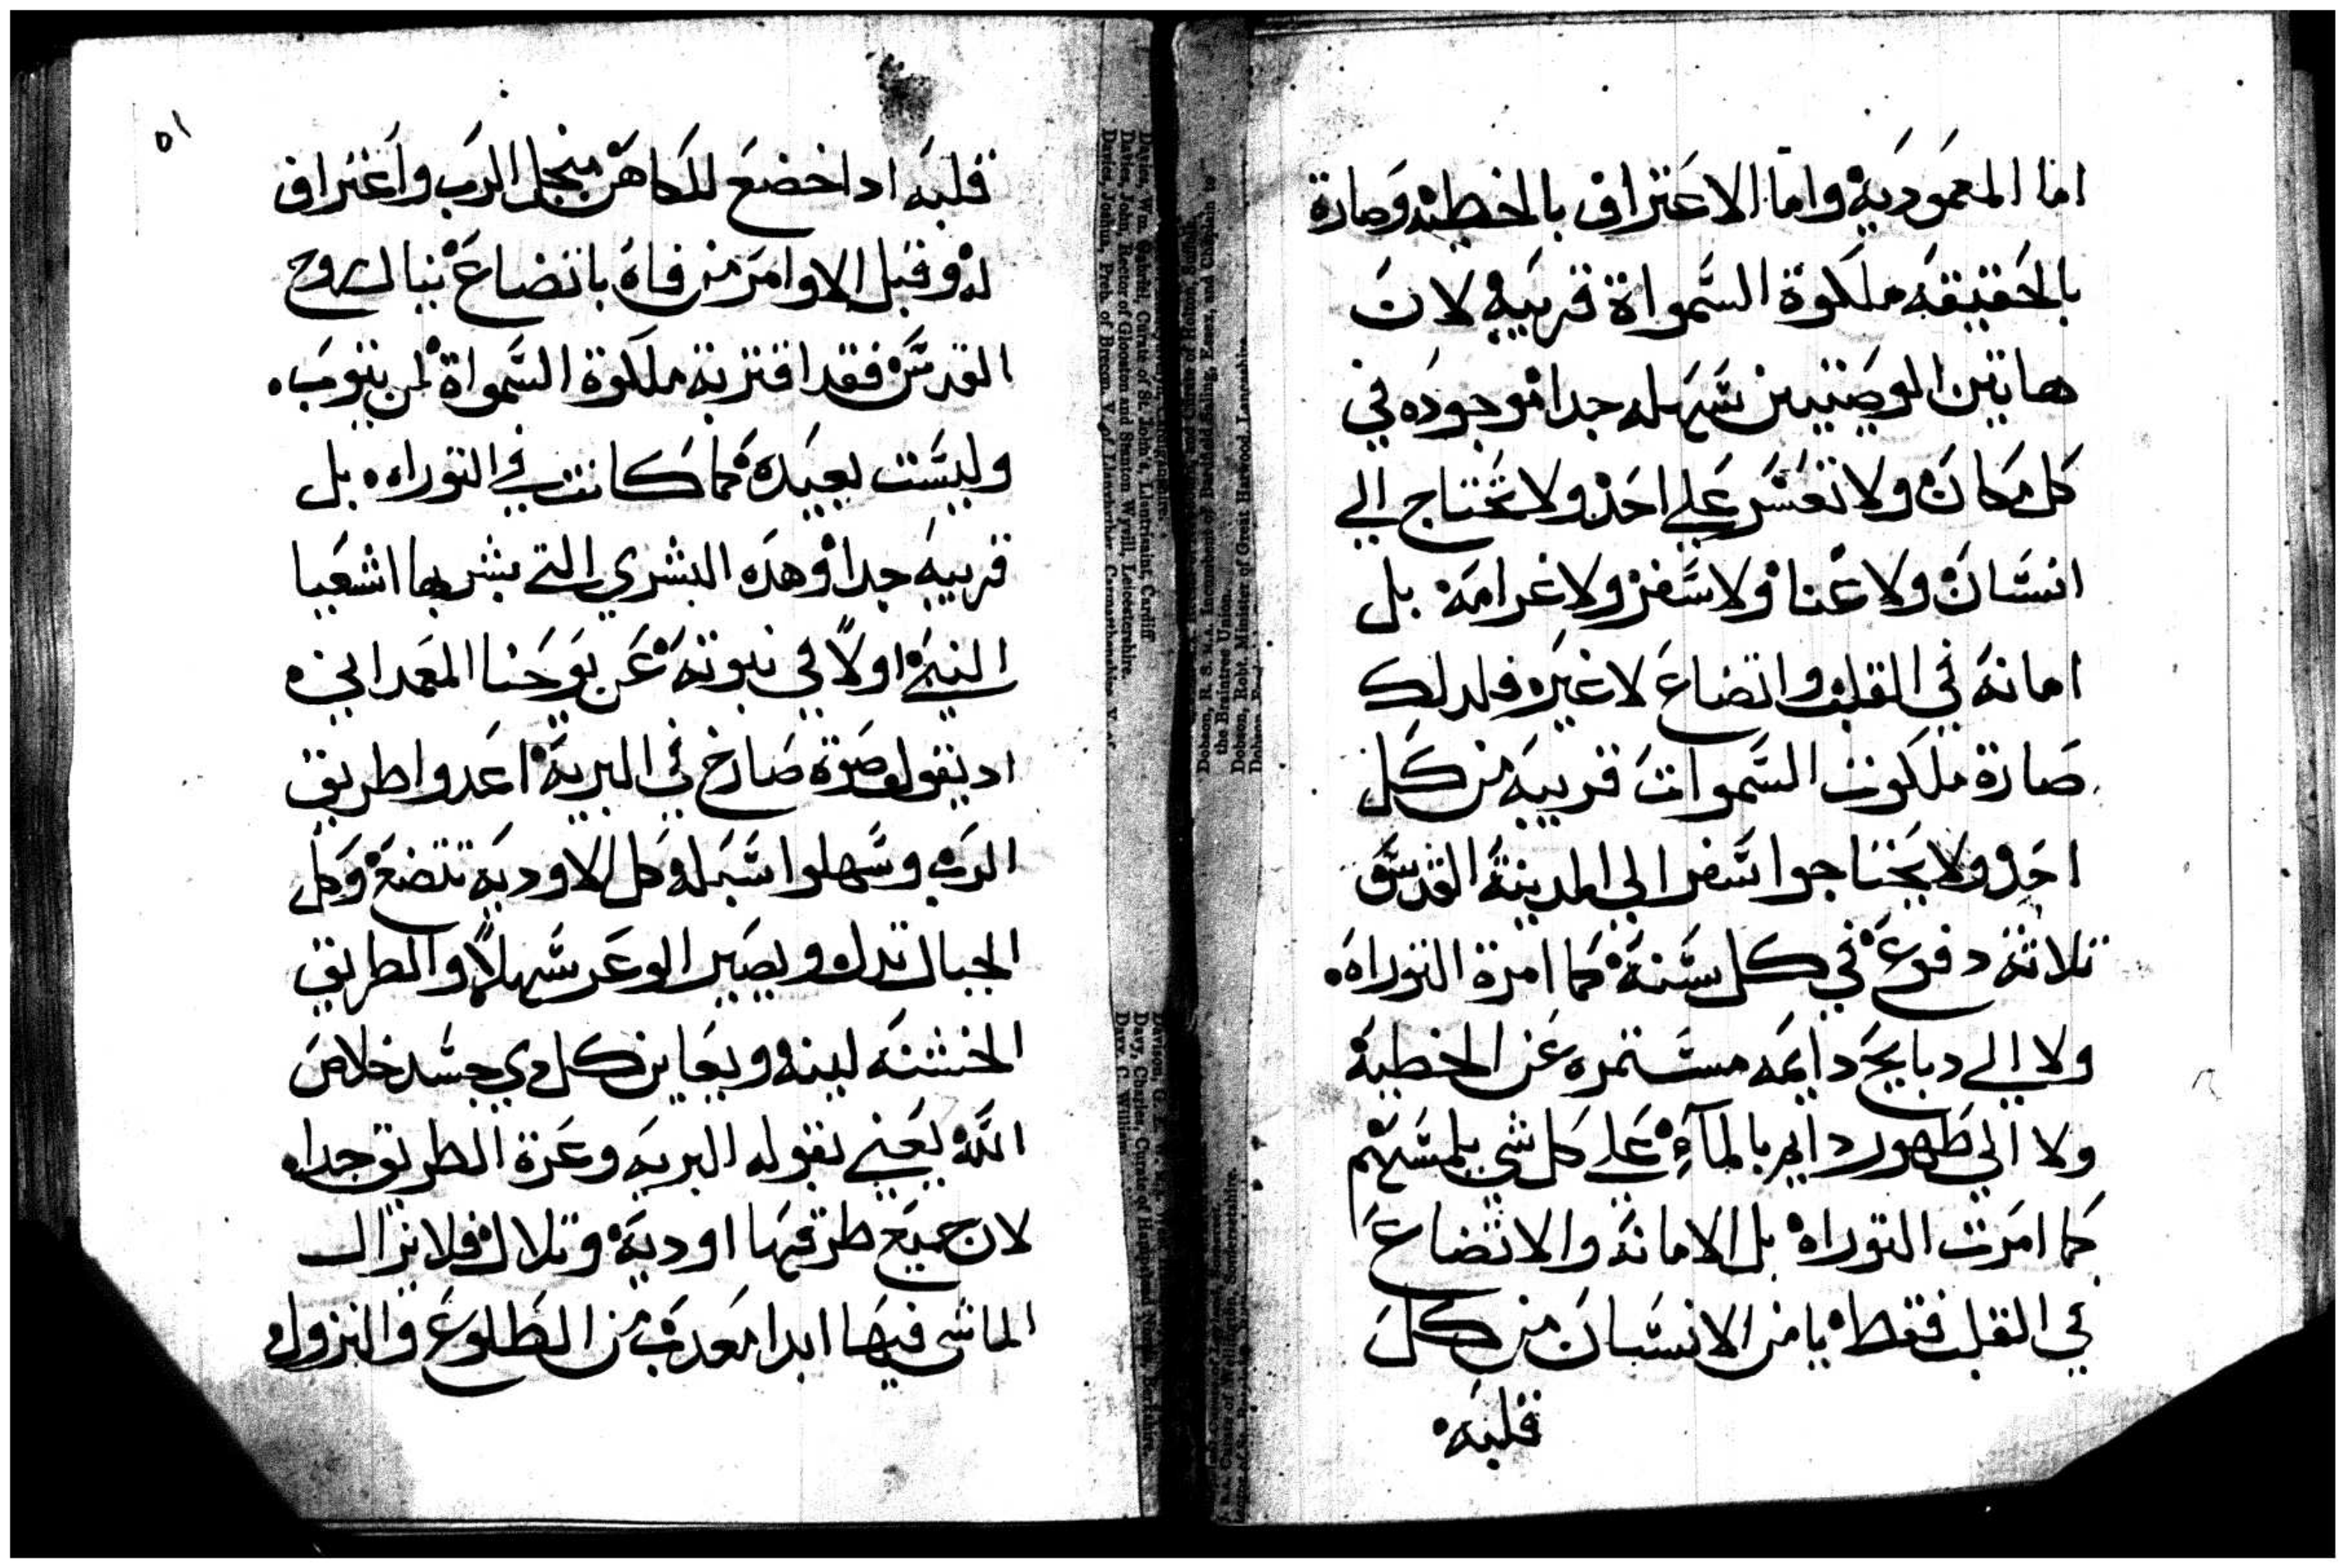 اما المعموديه واما الاعتراف بالخطيه وصارة
بالحقيقه ملكوة السمواة قريبه لان
هاتين الوصيتين سهله جدا موجوده في
كل مكان ولا تعسر علي احد ولا تحتاج الي
انسان ولا عنا ولا سفر ولا غرامه بل
امانه في القلب واتضاع لا غير فلدلك
صارة ملكوت السموات قريبه من كل
احد ولا يحتاجوا سفر الي المدينة القدس
تلاتة دفوع في كل سنة كما امرة التوراه
ولا الي دبايح دايمه مستمره عن الخطية
ولا الي طهور دايم بالمآء علي كل شي يلمسهم
كما امرت التوراه بل الامانة والاتضاع
في القلب فقط يامن الانسان من كل
قلبه
٥١
قلبه ادا خضع للكاهن منجل الرب واعتراف
له وقبل الاوامر من فاه باتضاع ينال روح
القدس فقد اقتربة ملكوة السمواة لمن يتوب
وليست بعيده كما كانت في التوراه بل
قريبه جدا وهده البشري التي بشر بها اشعيا
النبي اولاً في نبوته عن يوحنا المعمداني
اد يقول صوة صارخ في البرية اعدوا طريق
الرب وسهلوا سبله كل الاوديه تتضع وكل
الجبال تدل ويصير الوعر سهلاً والطريق
الخشنه لينه ويعاين كل دي جسد خلاص
الله يعني بقوله البريه وعرة الطريق جدا
لان جميع طرقها اودية وتلال فلا يزال
الماشي فيها ابدا معدب من الطلوع والنزول